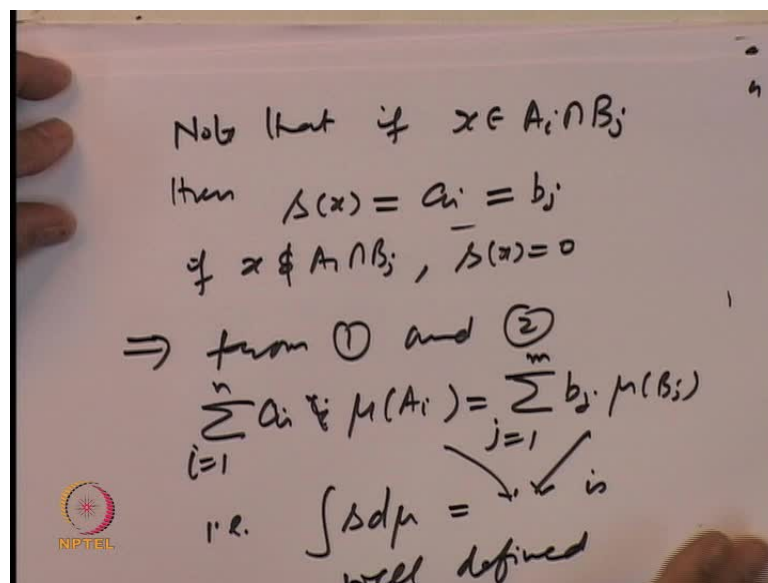 Note that if x ∈ A_i ∩ B_j
then s(x) = a_i = b_j
if x ∉ A_i ∩ B_j, s(x) = 0
⇒ from ① and ②
\sum_{i=1}^{n} a_i μ(A_i) = \sum_{j=1}^{m} b_j · μ(B_j)
i.e. ∫ s dμ = is
well defined
NPTEL